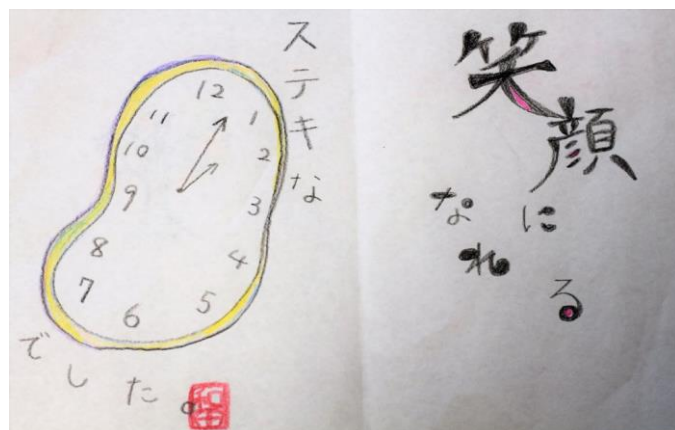 笑顔に
なれる
ステキな
12
1
2
3
4
5
6
7
8
9
10
11
でした。